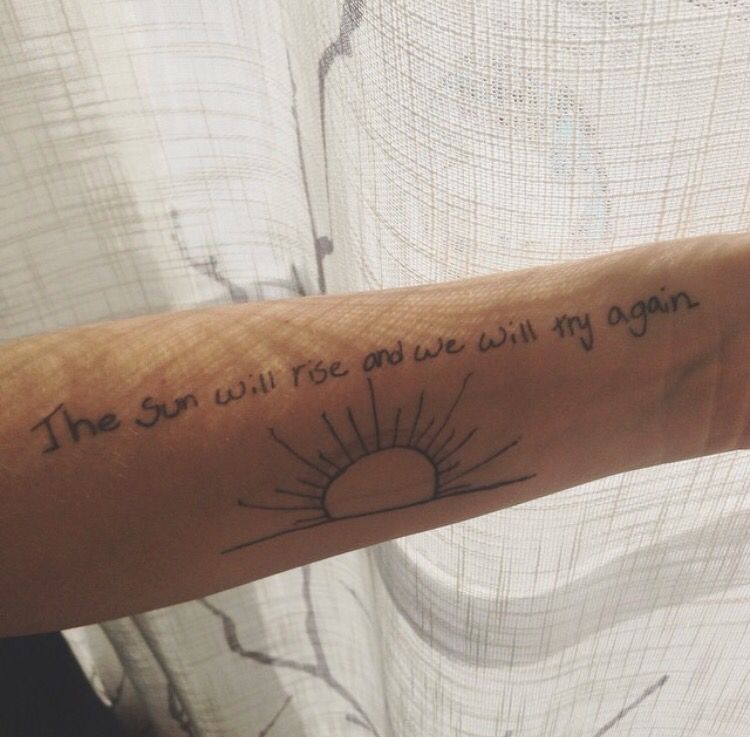 The sun will rise and we will try again